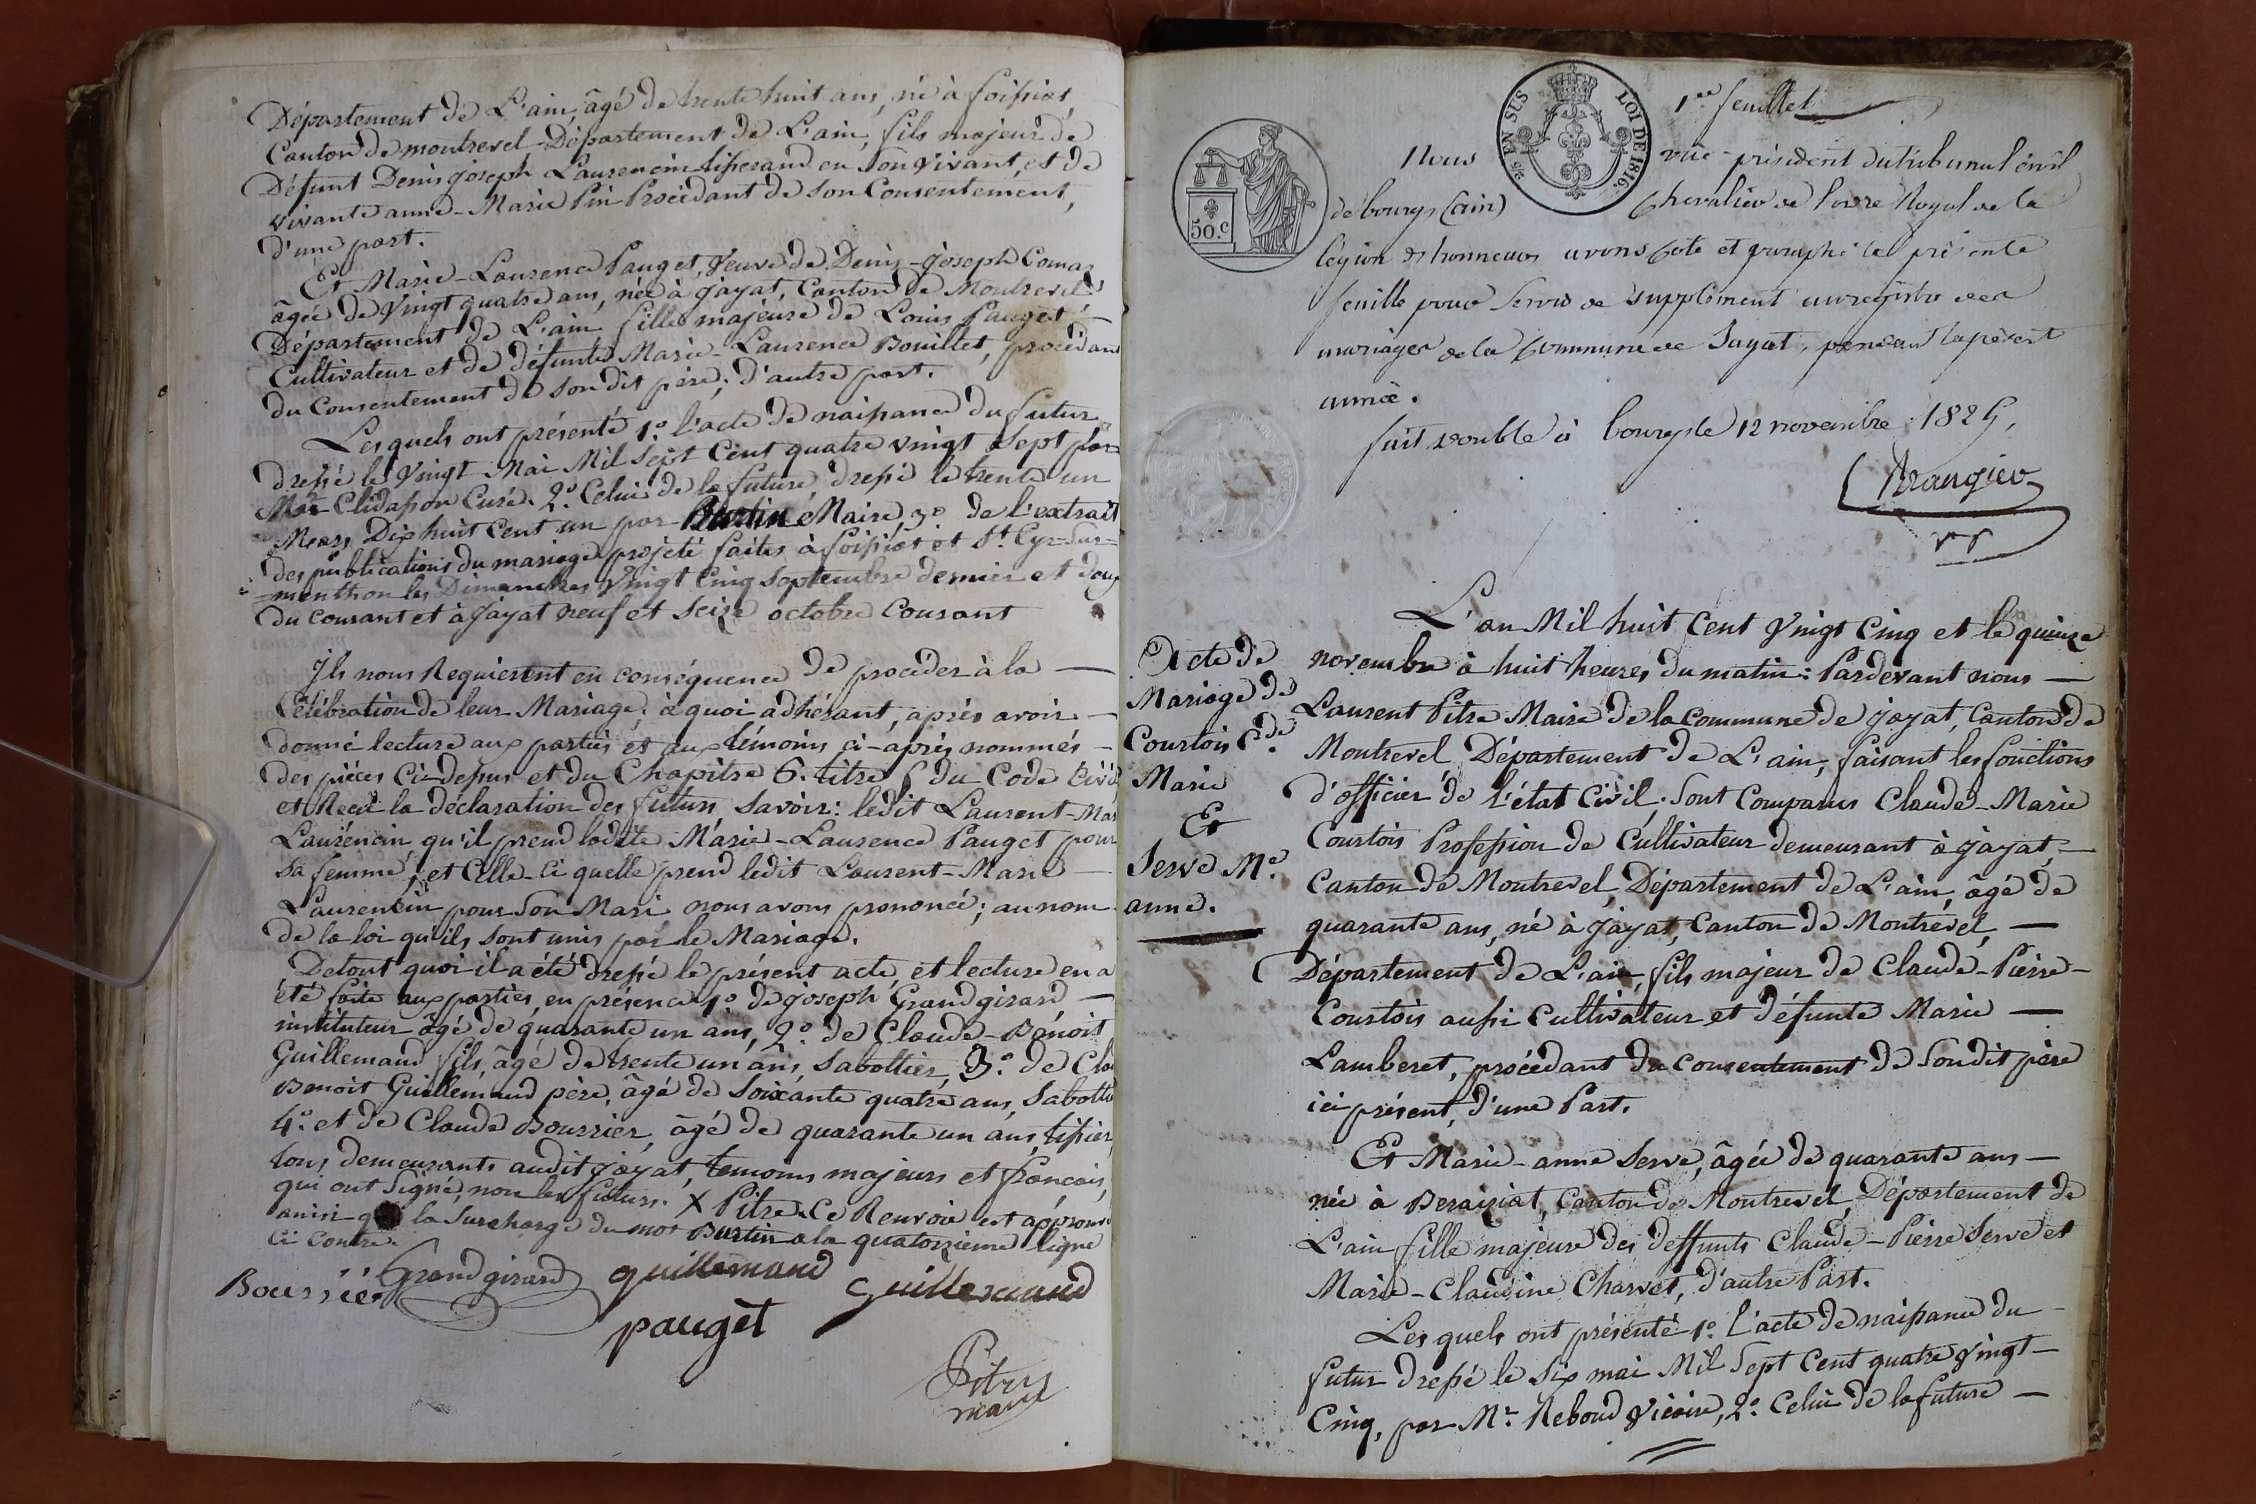 Département de L'ain, âgé de trente huit ans, né à foissiat,
Canton de montrevel Département de L'ain, fils majeur de
Défunt Denis joseph Laurencin tisserand en son vivant, et de
vivante anne-Marie Pin Procédant de son Consentement,
d'une part.
Et Marie-Laurence Pauget, Veuve de Denis-joseph Comas
âgée de Vingt quatre ans, née à jayat, Canton de Montrevel
Département de L'ain fille majeure de Louis Pauget
Cultivateur et de défunte Marie-Laurence Bouillet, procédant
du Consentement de son dit père; d'autre part.
Les quels ont présenté 1.º l'acte de naissance du futur
dressé le Vingt Mai Mil Sept Cent quatre vingt Sept par
Mr. Clidasson Curé. 2.º Celui de la future, dressé le trente un
Mars Dix huit Cent un par Burtin Maire, 3º de l'extrait
des publications du mariage projeté faites à foissiat et St. Cyr-Sur-
-menthon les Dimanches Vingt Cinq Septembre dernier et deux
du Courant et à Jayat neuf et seize octobre Courant
Ils nous Requierent en conséquence de procéder à la —
Célébration de leur Mariage; à quoi adhérant, après avoir —
donné lecture aux parties et aux témoins ci-après nommés —
des pièces Ci-dessus et du Chapitre 6. titre 5 du Code Civil
et Reçu la déclaration des futurs savoir: ledit Laurent-Mar
Laurencin qu'il prend ladite Marie-Laurence Pauget pour
sa femme, et Celle-Ci quelle prend ledit Laurent-Marie —
Laurencin pour Son Mari nous avons prononcé; au nom
de la loi qu'ils sont unis par le Mariage.
De tout quoi il a été dressé le présent acte, et lecture en a
été faite aux parties, en présence 1º de joseph Grandgirard —
instituteur âgé de quarante un ans, 2.º de Claude-Benoit
Guillemaud fils, âgé de trente un ans, Sabottier, 3.º de Cla
Benoit Guillemaud père, âgé de Soixante quatre ans, Sabotti
4.º et de Claude Bourrier, âgé de quarante un ans, tissier,
tous demeurants audit jayat, temoins majeurs et français,
qui ont signé, non les futurs. X Pitre. Ce Renvoi est approuvé
ainsi que la surcharge du mot Burtin a la quatorzieme ligne
Ci contre.
Bourrier Grandgirard guillemaud Guillemaud
pauget
Pitre
maire
50.c
5/e EN SUS LOI DE 1816.
1er feuillet
Nous vice-président du tribunal civil
de bourg (ain) Chevalier de l'ordre Royal de la
légion d'honneur avons Coté et paraphé la présente
feuille pour servir de supplément au registre des
mariages de la Commune de Jayat, pendant la présent
année.
fait double à bourg le 12 novembre 1825,
Acte de
Mariage de
Courtois C.de
Marie
Et
Serve M.e
anne.
L'an Mil huit Cent Vingt Cinq et le quinze
novembre à huit heures du matin: Pardevant nous —
Laurent Pitre Maire de la Commune de jayat, Canton de
Montrevel, Département de L'ain, faisant les fonctions
d'officier de l'état Civil, Sont Comparus Claude-Marie
Courtois Profession de Cultivateur demeurant à jayat, —
Canton de Montrevel, Département de L'ain, âgé de
quarante ans, né à Jayat, Canton de Montrevel, —
Département de L'ain, fils majeur de Claude-Pierre-
Courtois aussi Cultivateur et défunte Marie —
Lamberet, procédant du consentement de Son dit père
ici présent, d'une Part.
Et Marie-anne Serve, âgée de quarante ans —
née à Beraiziat, Canton de Montrevel, Département de
L'ain fille majeure des deffunts Claude-Pierre Serve et
Marie-Claudine Charvet, d'autre Part.
Les quels ont présenté 1.º l'acte de naissance du
futur dressé le Six mai Mil Sept Cent quatre Vingt —
Cinq, par Mr. Reboud Vicaire, 2.º Celui de la future —